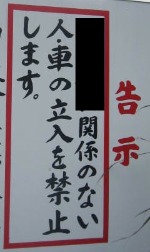 告示
関係のない
人・車の立入を禁止
します。